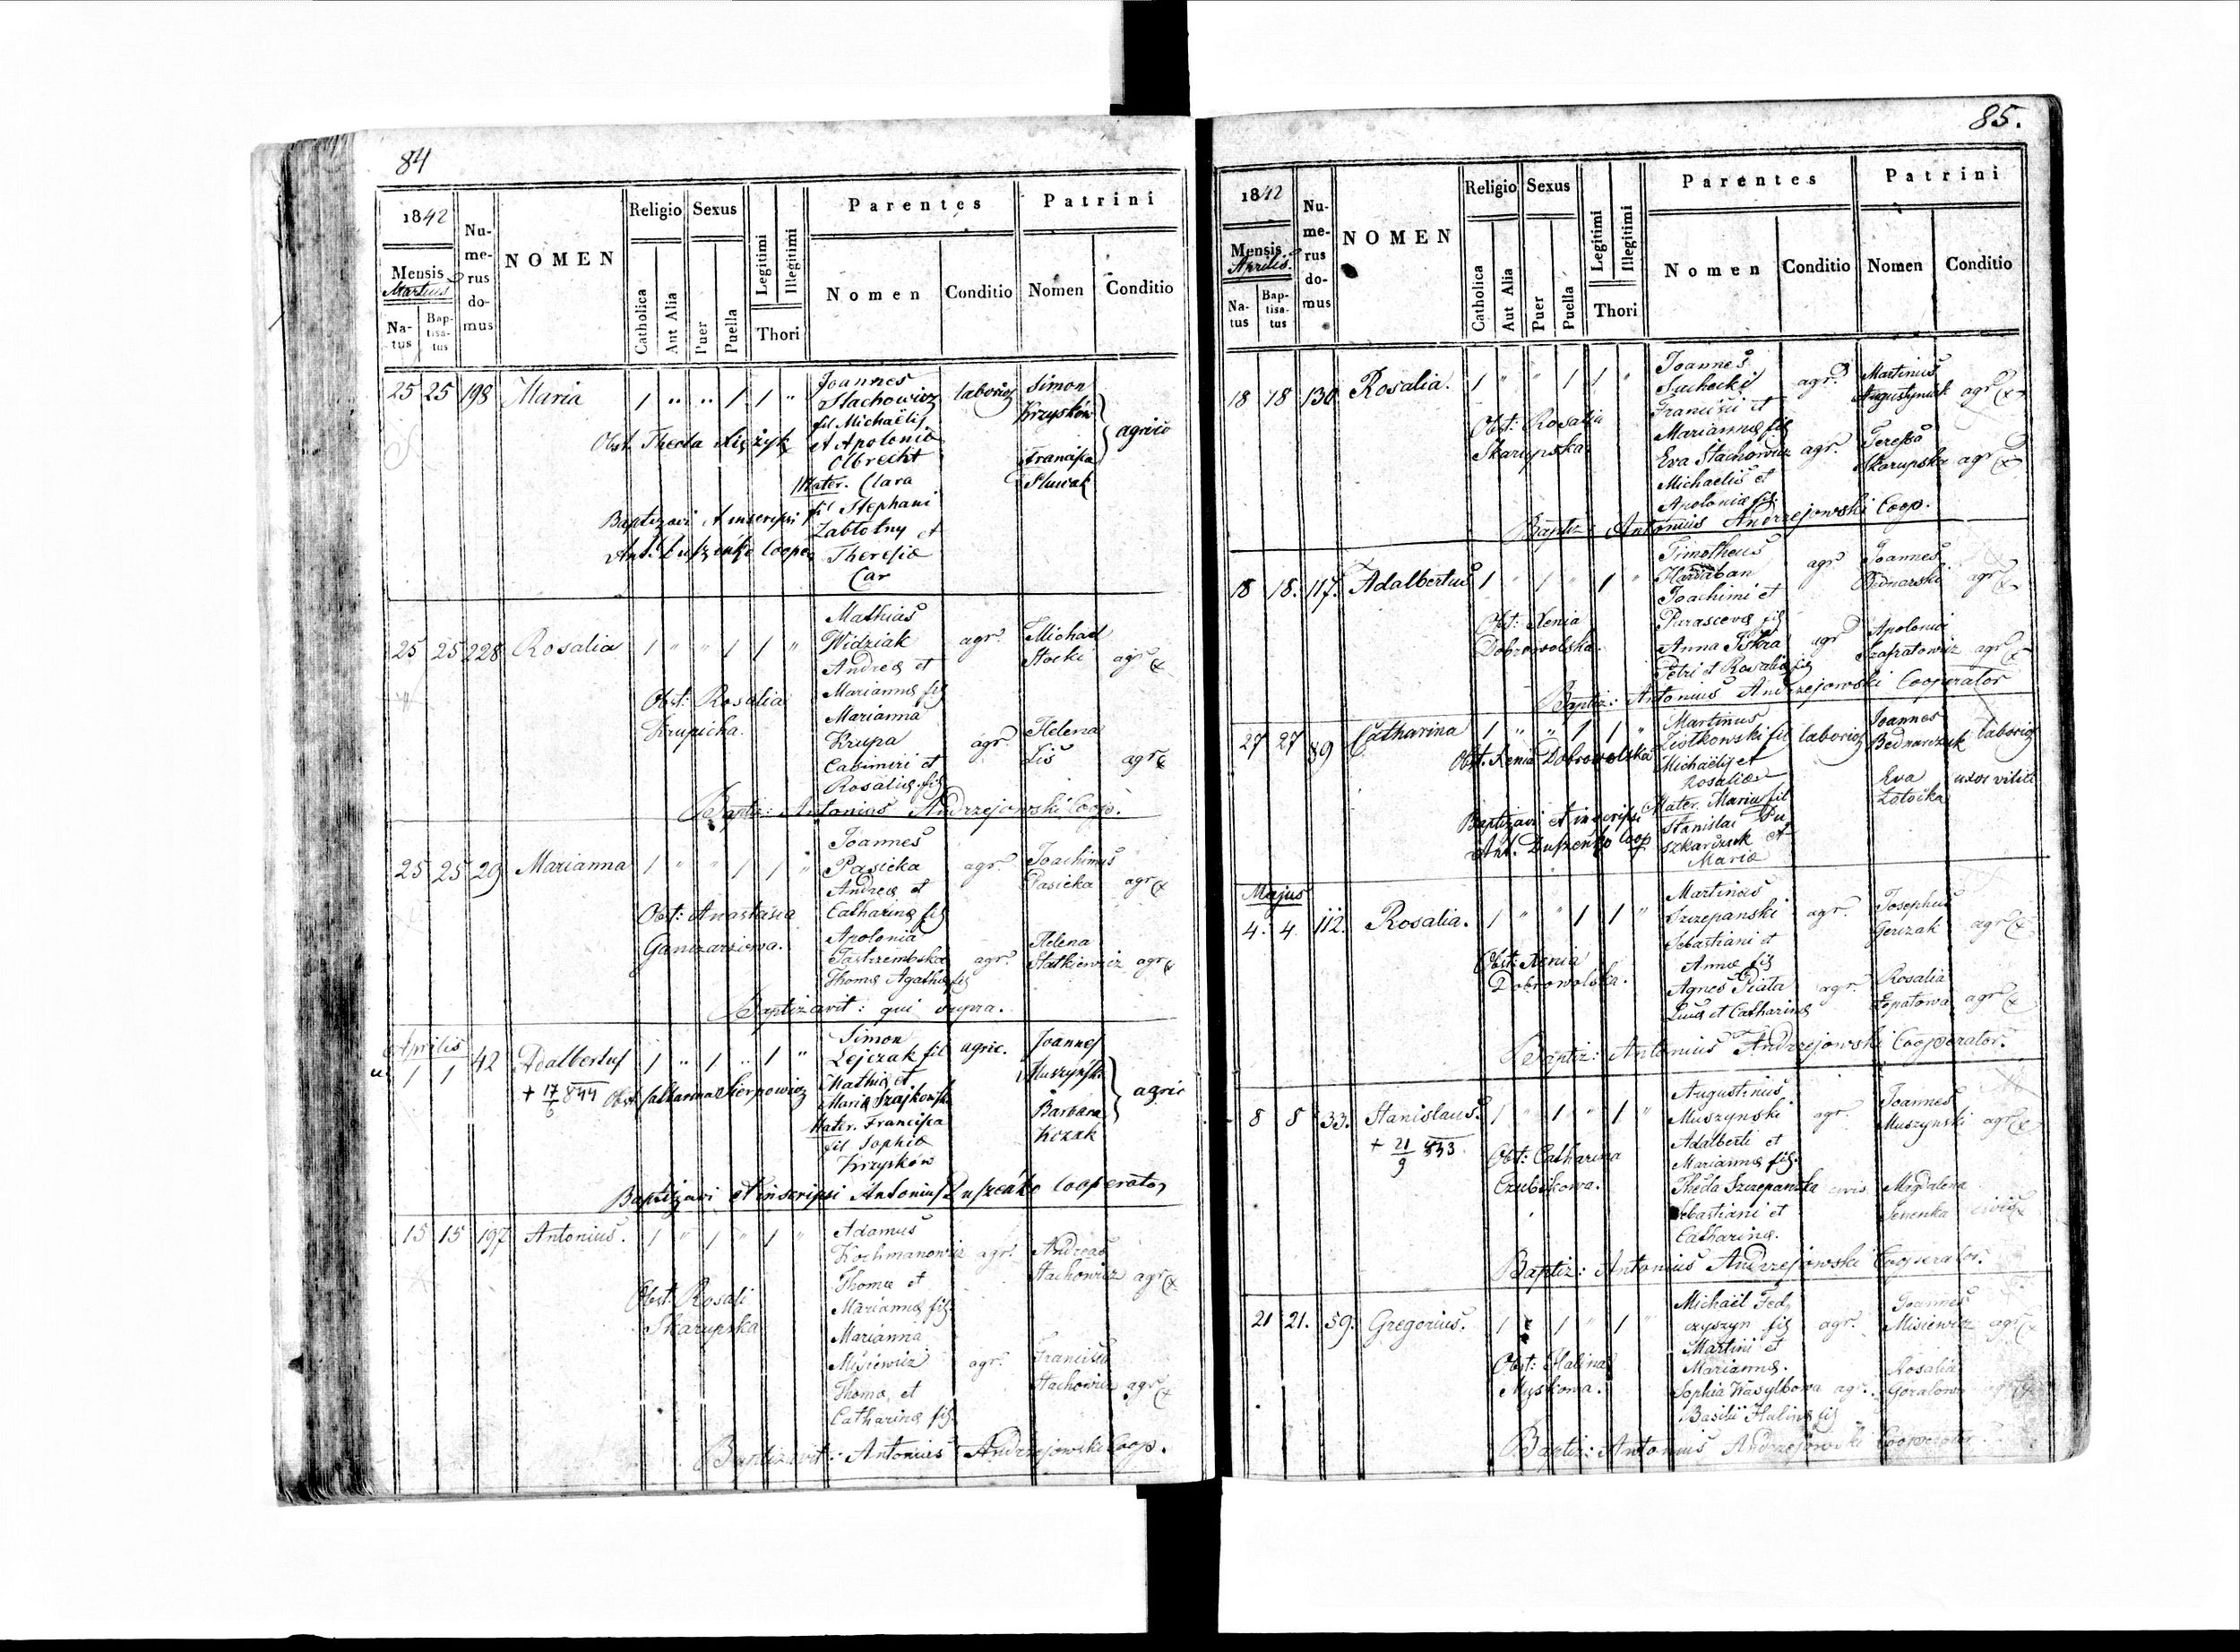 84
1842
Mensis
Martius
Na-
tus
Bap-
tisa-
tus
Nu-
me-
rus
do-
mus
NOMEN
Religio
Catholica
Aut Alia
Sexus
Puer
Puella
Legitimi
Illegitimi
Thori
Parentes
Nomen
Conditio
Patrini
Nomen
Conditio
25 25 198 Maria 1 " " 1 1 "
Joannes
Stachowicz
fil Michaëlis
et Apolonia
Olbrecht
Mater. Clara
fil Stephani
Zabłotny et
Theresia
Car
Simon
Krzysków
Francisca
agric
Obst. Thecla
Baptizavi et inscripsi
25 25 228 Rosalia 1 " " 1 1 "
Mathias
Widziak agr.
Andreæ et
Mariannæ fil
Marianna
Krupa agr.
Casimiri et
Rosaliæ fil
Michael
Stocki agr
Helena
Lis agr
Obst: Rosalia
Krupicha.
Baptiz: Antonius Andrzejowski Coop.
25 25 29 Marianna 1 " " 1 1 "
Joannes
Pasieka agr.
Andreæ et
Catharinæ fil
Apolonia
Jastrzembska agr.
Thomæ Agathæ fil
Joachimus
Pasieka agr
Helena
Statkiewicz agr
Obst: Anastasia
Ganczarzowa.
Baptizavit: qui supra.
Aprilis
1 1 42 Adalbertus 1 " 1 " 1 "
+ 17/6 844
Simon
Lejczak fil agric.
Mathiæ et
Mater. Francisca
fil Sophia
Krzysków
Joannes
Muszyński
Barbara
Kozak
agric
Baptizavi et inscripsi Antonius Duszeńko Cooperator
15 15 197 Antonius. 1 " 1 " 1 "
Adamus
Kochmanowicz agr.
Thomæ et
Mariannæ fil.
Marianna
Misiewicz agr.
Thomæ et
Catharinæ fil.
Andreas
Stachowicz agr
Stachowicz agr
Obst: Rosali
Skarupska
Baptizavit: Antonius Andrzejowski Coop.
85.
1842
Mensis
Aprilis.
Na-
tus
Bap-
tisa-
tus
Nu-
me-
rus
do-
mus
NOMEN
Religio
Catholica
Aut Alia
Sexus
Puer
Puella
Legitimi
Illegitimi
Thori
Parentes
Nomen
Conditio
Patrini
Nomen
Conditio
18 18 130 Rosalia. 1 " " 1 1 "
Joannes
Suchecki agr.
Francisci et
Mariannæ fil
Eva Stachowicz agr.
Michaelis et
Apoloniæ fil.
Martinus
Augustyniak agr
Teressa
Skarupska agr
Obst: Rosalia
Skarupska
Baptiz: Antonius Andrzejowski Coop.
18 18. 117. Adalbertus 1 " 1 " 1 "
Timotheus
Harbaban agr
Joachimi et
Parascevæ fil
Anna Iskra agr
Petri et Rosaliæ fil
Joannes
Bednarski agr
Apolonia
agr
Obst: Xenia
Dobrowolska.
Baptiz: Antonius Andrzejowski Cooperator
27 27 89 Catharina 1 " " 1 1 "
Martinus
Ziołkowski fil
Michaëlis et
Rosaliæ
Mater. Maria fil
Stanislai Pu
szkarczuk et
Maria
Joannes
Bednarczuk
Eva
Złotocka
uxor vilici
Obst. Xenia Dobrowolska
Baptizavi et inscripsi
Ant. Duszeńko Coop
Majus
4. 4 112. Rosalia. 1 " " 1 1 "
Martinus
Szczepanski agr.
Sebastiani et
Annæ fil
Agnes Piata agr.
Lucæ et Catharinæ
Josephus
Gerczak agr
Rosalia
Lopatowa agr
Obst: Xenia
Dobrowolska.
Baptiz: Antonius Andrzejowski Cooperator.
8 8 33. Stanislaus. 1 " 1 " 1 "
+ 21/9 843.
Augustinus
Muszynski agr.
Adalberti et
Mariannæ fil.
Thecla Szczepanska civis
Sebastiani et
Catharinæ.
Joannes
Muszynski agr
Magdalena
Senenka civis
Obst: Catharina
Czubikowa.
Baptiz: Antonius Andrzejowski Cooperator.
21 21. 59. Gregorius. 1 " 1 " 1 "
Michaël Fed,
czyszyn fil agr.
Martini et
Mariannæ.
Sophia Wasylbowa agr.
Basilii Halinæ fil
Joannes
Misiewicz agr
Rosalia
Goralowa
Obst: Halina
Myskowa.
Baptiz: Antonius Andrzejowski Cooperator.